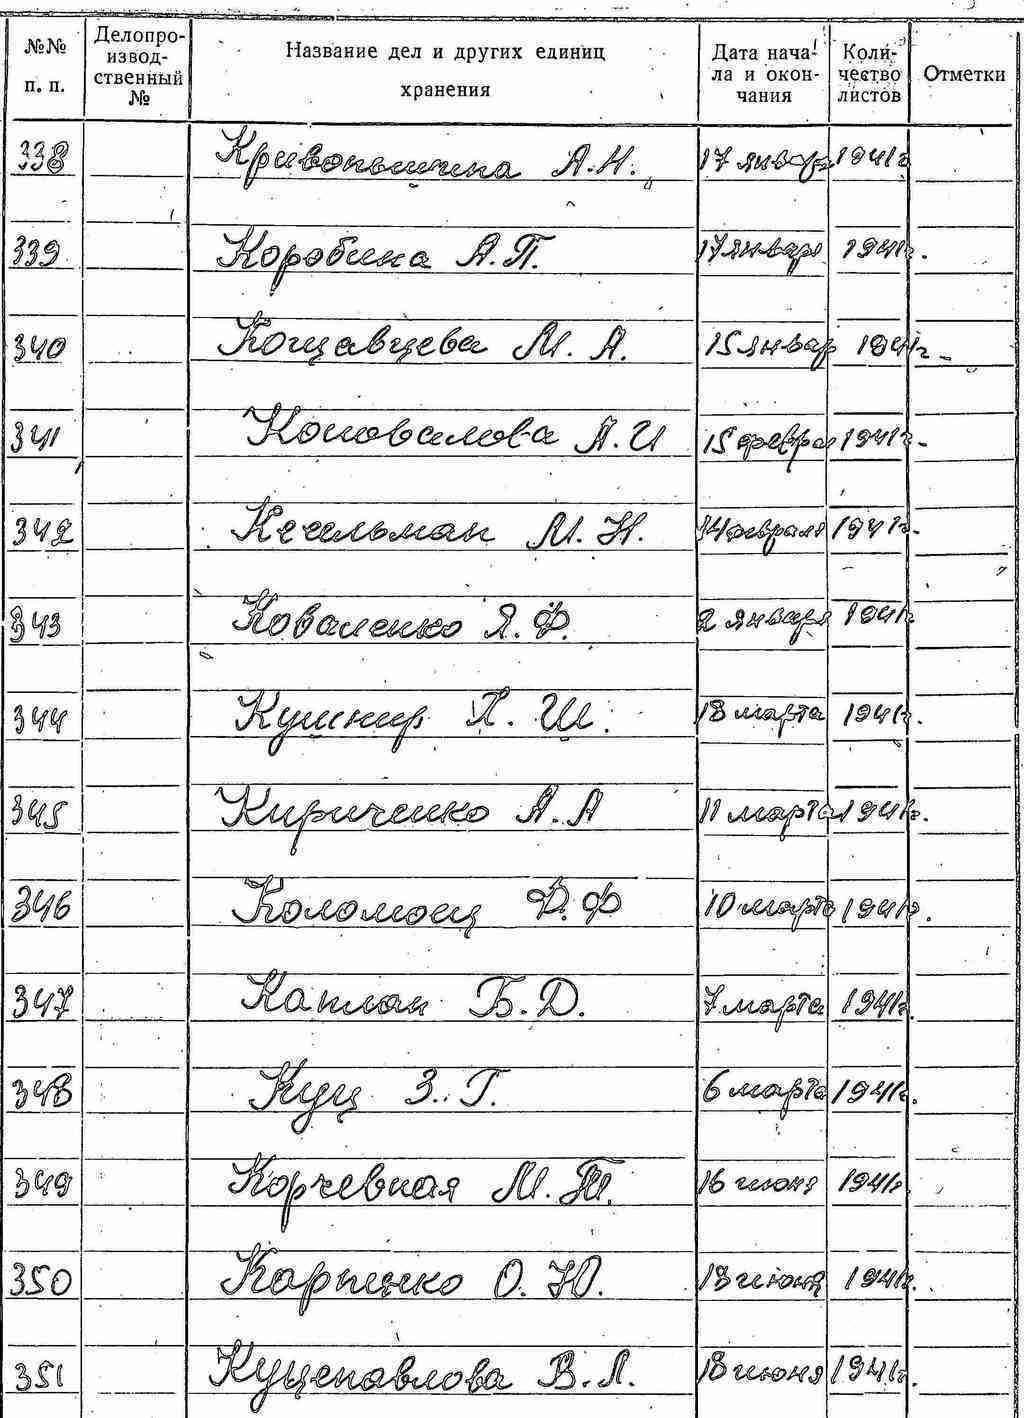 №№ п. п. Делопроизводственный № Название дел и других единиц хранения Дата начала и окончания Количество листов Отметки
338 Кривопишина А.Н. 17 января 1941г
339 Коробина А.П. 17 января 1941г.
340 Кощавцева М. А. 15 январ 1941г.
341 Коновалова А.И 15 феврал 1941г.
342 Кесельман М. Н. 14 февраля 1941г.
343 Коваленко Я.Ф. 2 января 1941г
344 Кушнир Х. Ш. 18 марта 1941г.
345 Кириченко А.А 11 марта 1941г.
346 Коломоец Ф.Ф 10 марта 1941г.
347 Каплан Б.Д. 7 марта 1941г.
348 Куц З. Г. 6 марта 1941г.
349 Корчевная М.Т. 16 июня 1941г.
350 Карпенко О. Ю. 18 июня 1941г.
351 Куцепавлова В.Л. 18 июня 1941г.